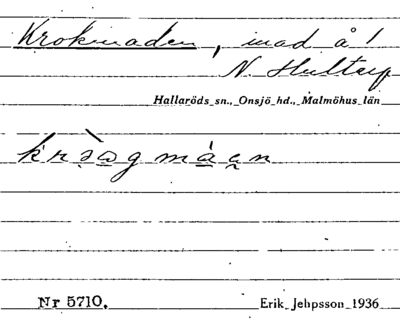 Krokmaden, mad å!
N. Hultarp
Hallaröds sn., Onsjö hd., Malmöhus län
Nr 5710.
Erik Jehpsson 1936